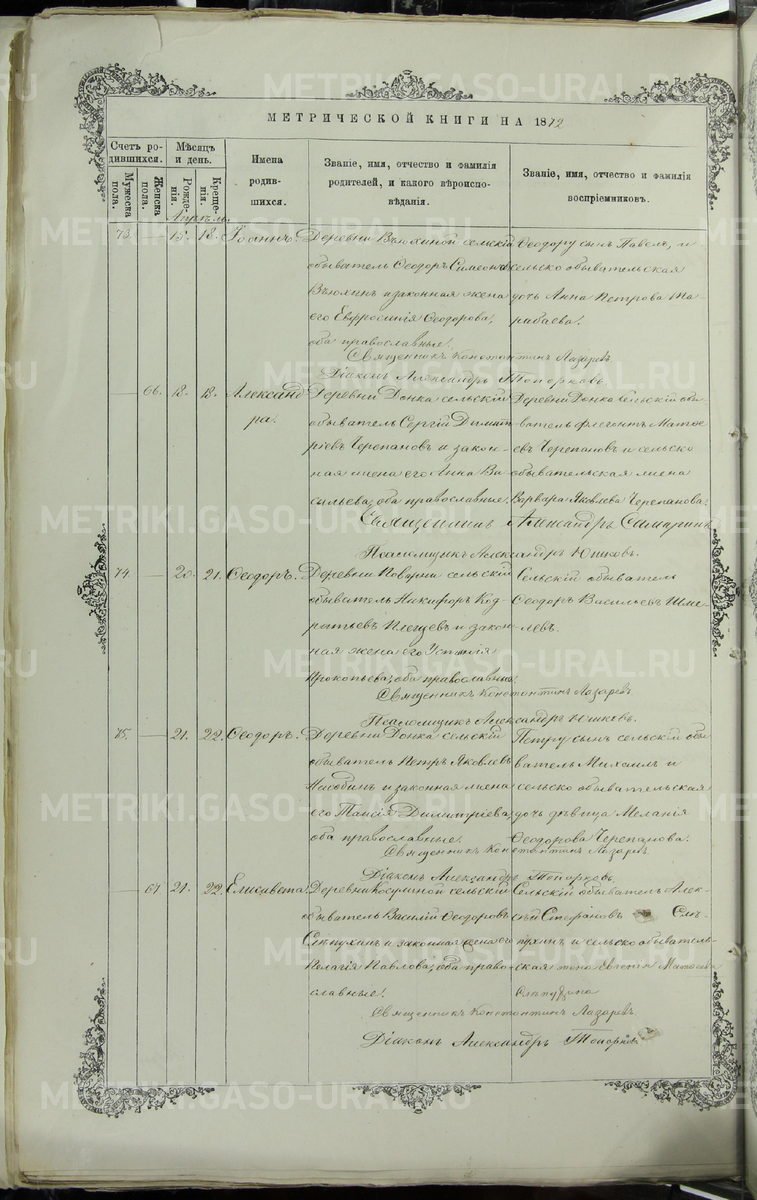 МЕТРИЧЕСКОЙ КНИГИ НА 1872
Счетъ родившихся.
Мужеска пола.
Женска пола.
Мѣсяцъ и день.
Рожденія.
Крещенія.
Имена родившихся.
Званіе, имя, отчество и фамилія родителей, и какого вѣроисповѣданія.
Званіе, имя, отчество и фамилія воспріемниковъ.
Апрѣль.
73. — 15. 18. Іоаннъ. Деревни Вьюхиной сельскій Ѳеодору сынъ Павелъ, и
обыватель Ѳеодоръ Симеоновъ сельско обывательская
Вьюхинъ и законная жена дочь Анна Петрова
его Евфросинія Ѳеодорова,
оба православные.
Священникъ Константинъ Лазаревъ
Діаконъ Александръ Топорковъ
— 66. 18. 18. Александра. Деревни Донка сельскій Деревни Донка сельскій обы-
обыватель Сергій Димит- ватель Флегонтъ Матѳе-
ріевъ Черепановъ и закон- евъ Черепановъ и сельско
ная жена его Анна Ва- обывательская жена
сильева, оба православные. Варвара Яковлева Черепанова.
Священникъ Александръ Самаринъ
Псаломщикъ Александръ Юшковъ.
74. — 20. 21. Ѳеодоръ. Деревни сельскій Сельскій обыватель
обыватель Никифоръ Код- Ѳеодоръ Васильевъ Шме-
ратьевъ и закон- левъ.
ная жена его Устинія
Прокопьева, оба православные.
Священникъ Константинъ Лазаревъ
Псаломщикъ Александръ Юшковъ.
75. — 21. 22. Ѳеодоръ. Деревни Донка сельскій Петру сынъ сельскій обы-
обыватель Петръ Яковлевъ ватель Михаилъ и
и законная жена сельско обывательская
его Таисія Димитріева, дочь дѣвица Меланія
оба православные. Ѳеодорова Черепанова.
Священникъ Константинъ Лазаревъ
Діаконъ Александръ Топорковъ
— 67 21. 22. Елисавета. Деревни Косулиной сельскій Сельскій обыватель Алек-
обыватель Василій Ѳеодоровъ сѣй Стефановъ Слѣ-
Слѣпухинъ и законная жена его пухинъ и сельско обыватель-
Пелагія Павлова, оба право- ская жена
славные.
Священникъ Константинъ Лазаревъ
Діаконъ Александръ Топорковъ
METRIKI.GASO-URAL.RU